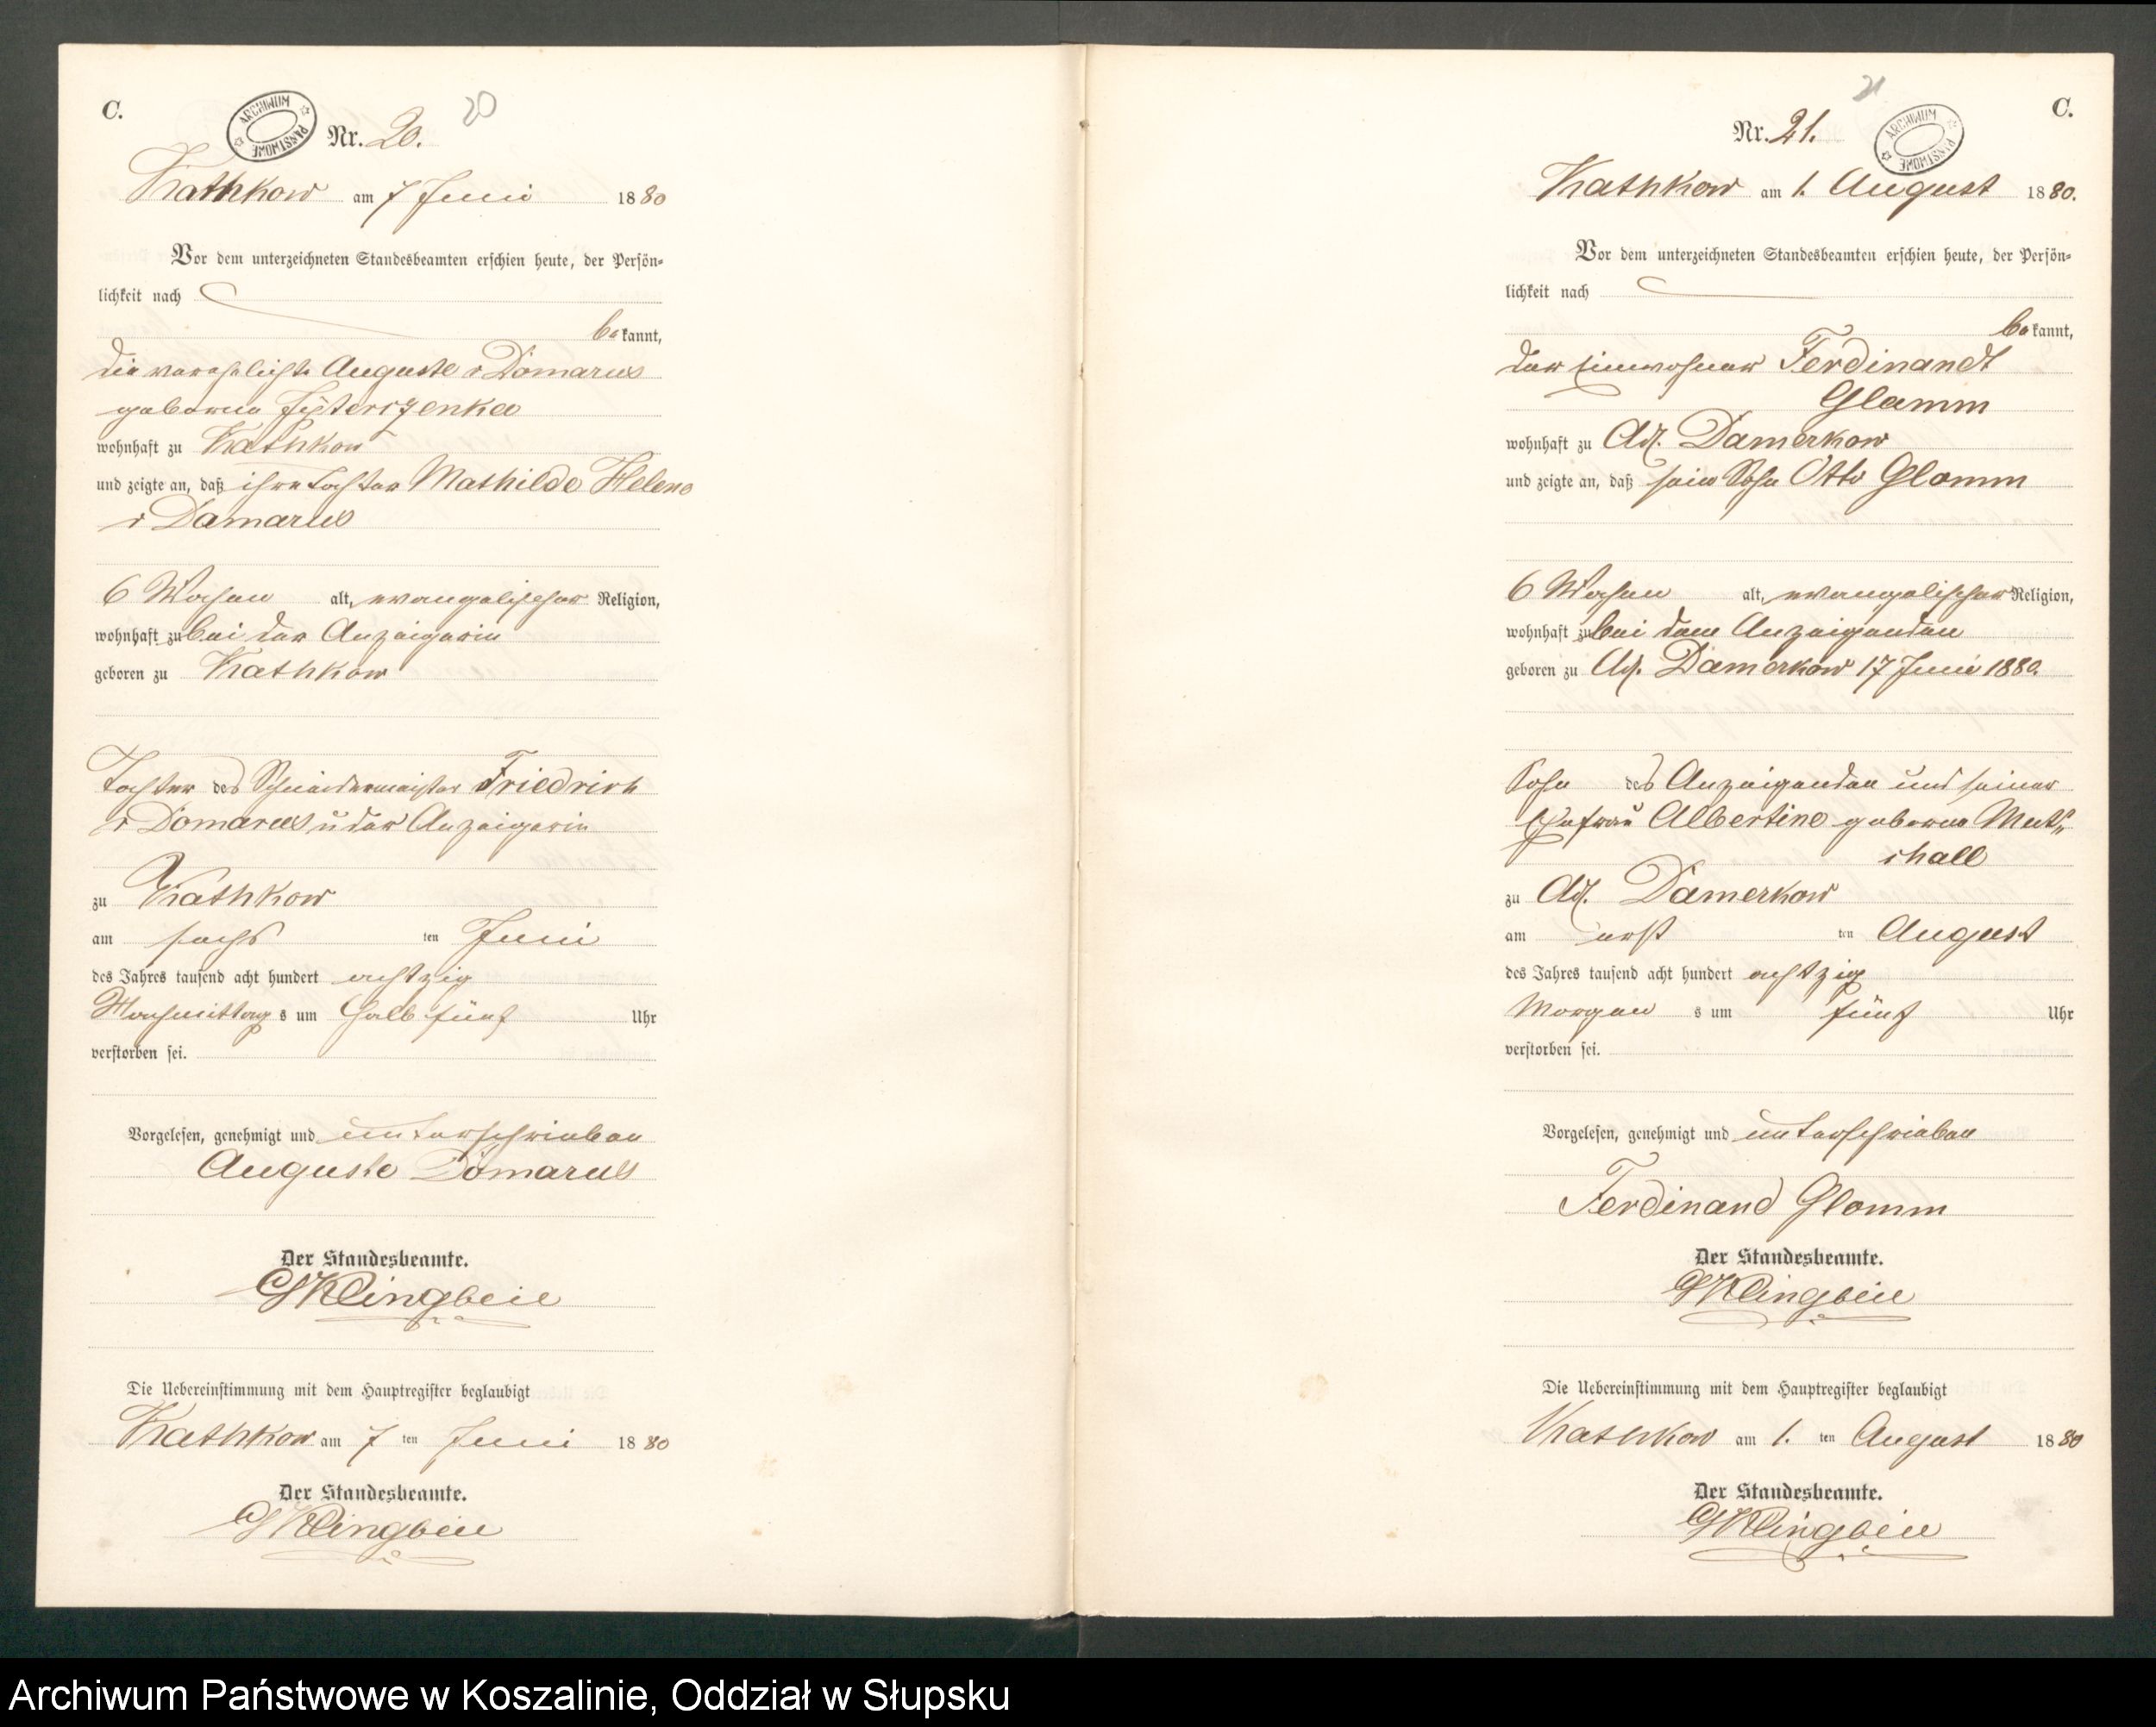 C.
ARCHIWUM PAŃSTWOWE
20
Nr. 20.
Kathkow am 7 Juni 1880
Vor dem unterzeichneten Standesbeamten erschien heute, der Persön-
lichkeit nach
bekannt,
die verehelichte Auguste Domarus
geborne
wohnhaft zu Kathkow
und zeigte an, daß ihre Tochter Mathilde Helene
Damarus
6 Wochen alt, evangelischer Religion,
wohnhaft zu bei der Anzeigerin
geboren zu Kathkow
Tochter des Schneidermeister Friedrich
Domarus u der Anzeigerin
zu Kathkow
am sechs ten Juni
des Jahres tausend acht hundert achtzig
Nachmittags um halb fünf Uhr
verstorben sei.
Vorgelesen, genehmigt und unterschrieben
Auguste Domarus
Der Standesbeamte.
Klingbeil
Die Uebereinstimmung mit dem Hauptregister beglaubigt
Kathkow am 7 ten Juni 1880
Der Standesbeamte.
Klingbeil
21
C.
Nr. 21.
ARCHIWUM PAŃSTWOWE
Kathkow am 1. August 1880.
Vor dem unterzeichneten Standesbeamten erschien heute, der Persön-
lichkeit nach
bekannt,
der Einwohner Ferdinandt
Glamm
wohnhaft zu Adl. Damerkow
und zeigte an, daß sein Sohn Otto Glamm
6 Wochen alt, evangelischer Religion,
wohnhaft zu bei dem Anzeigenden
geboren zu Adl. Damerkow 17 Juni 1880.
Sohn des Anzeigenden und seiner
Ehefrau Albertine geborne
zu Adl. Damerkow
am erst ten August
des Jahres tausend acht hundert achtzig
Morgens um fünf Uhr
verstorben sei.
Vorgelesen, genehmigt und unterschrieben
Ferdinand Glomm
Der Standesbeamte.
Klingbeil
Die Uebereinstimmung mit dem Hauptregister beglaubigt
Kathkow am 1. ten August 1880
Der Standesbeamte.
Klingbeil
Archiwum Państwowe w Koszalinie, Oddział w Słupsku